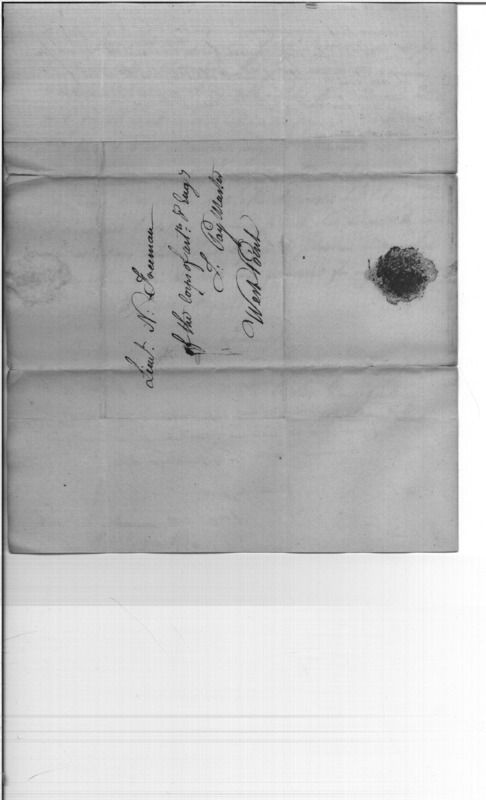 Lieut. N. Freeman
of the Corps of art. & Eng.
& Pay Master
West Point